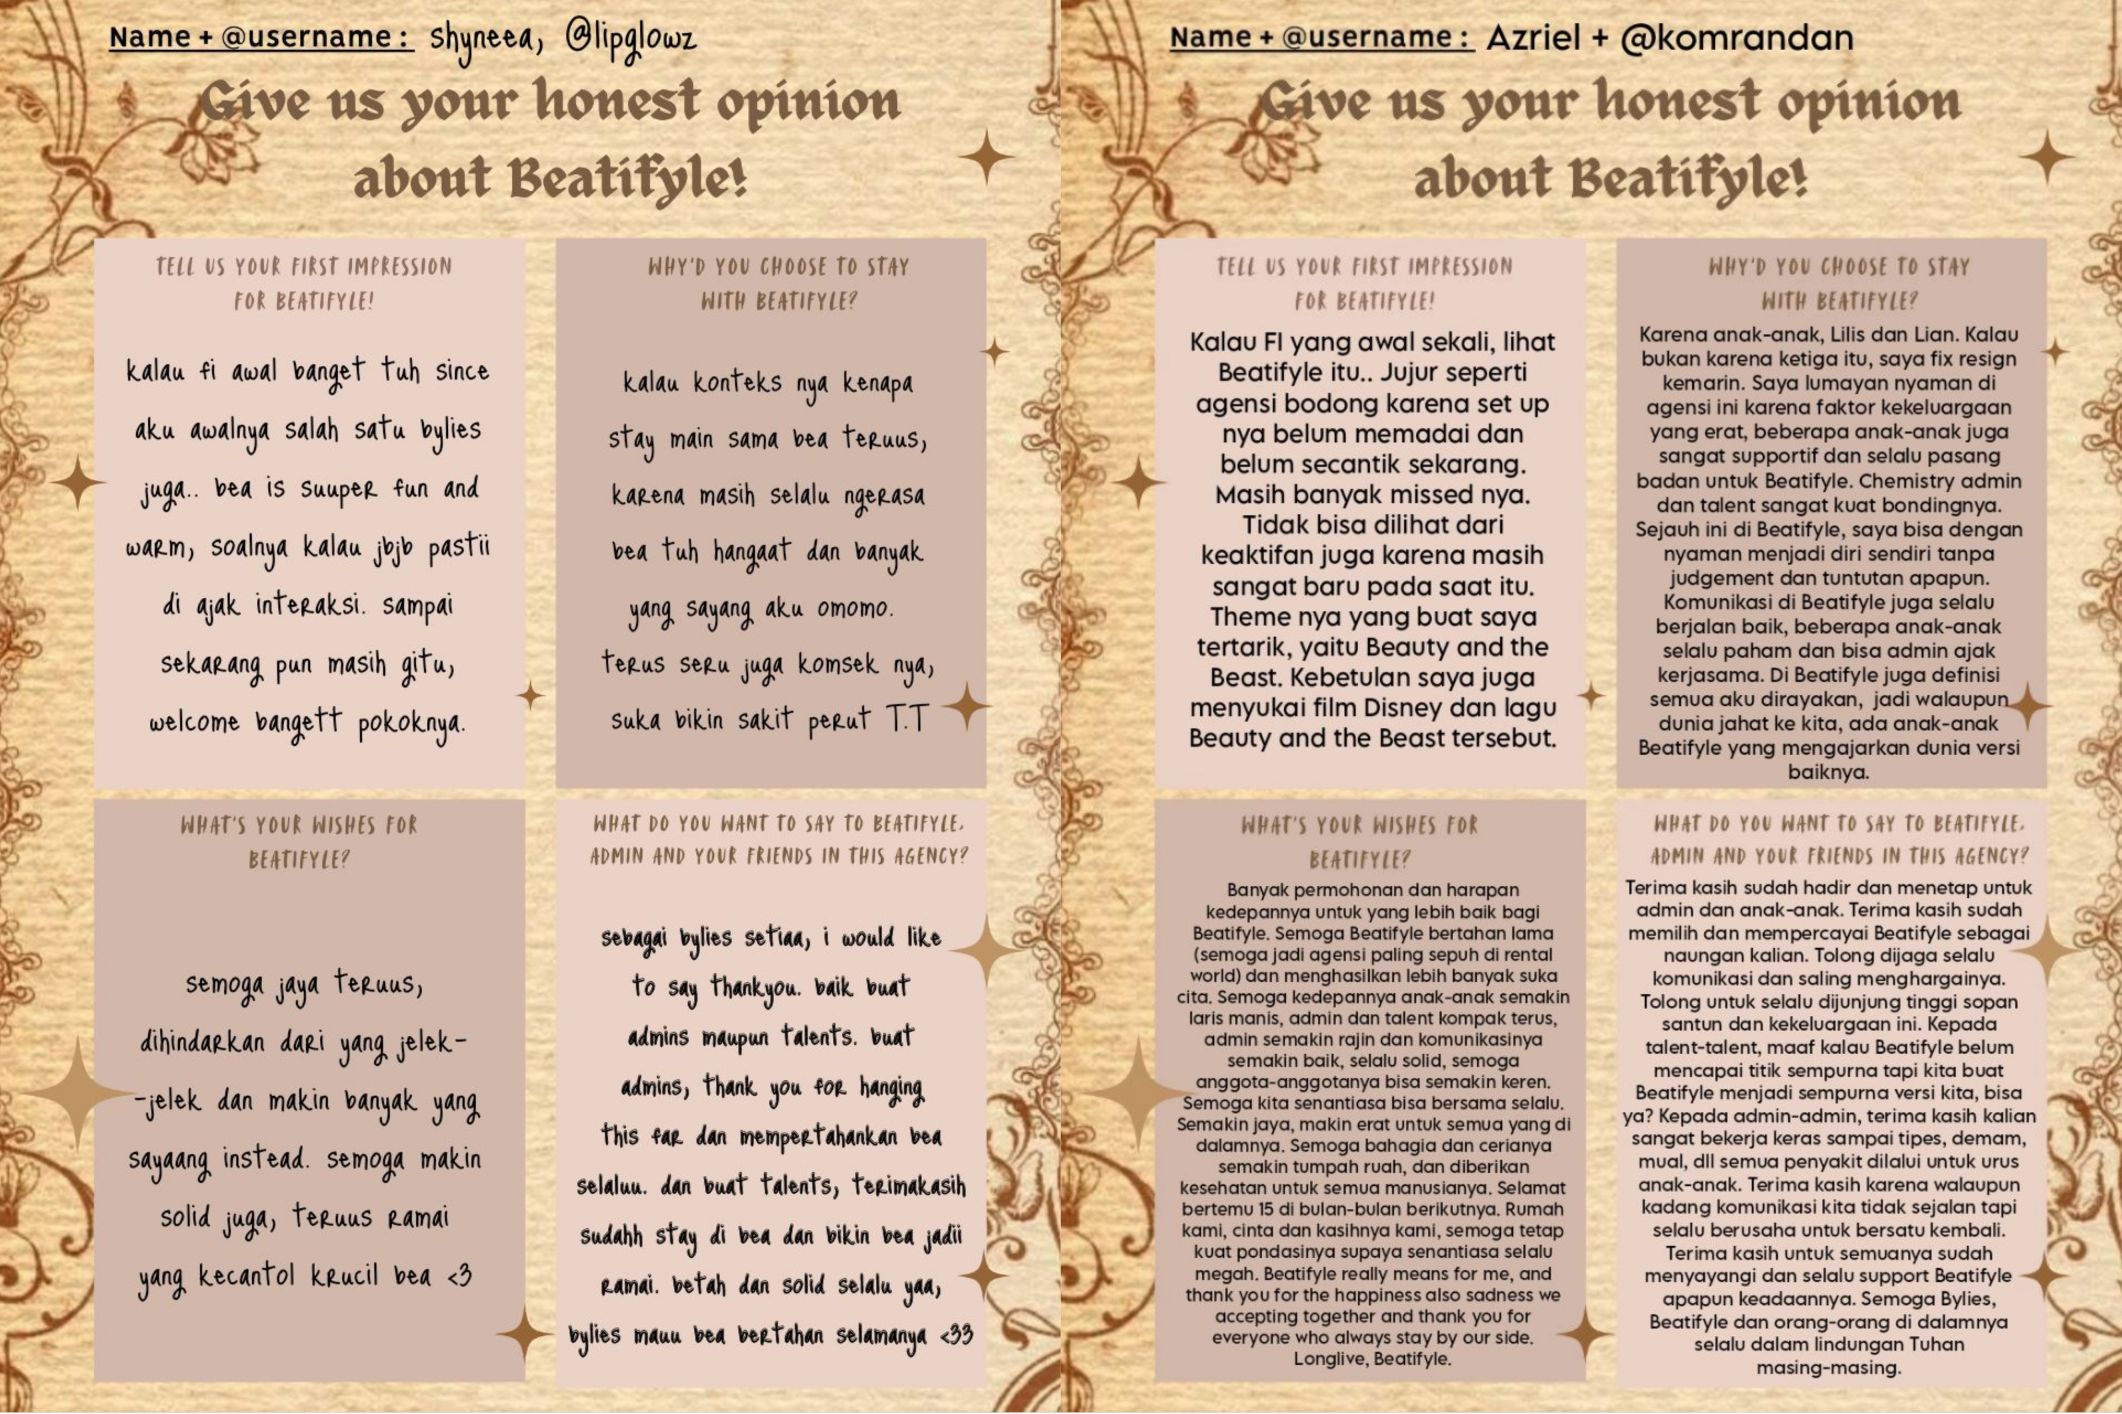 Name + @username : shyneea, @lipglowz
Give us your honest opinion
about Beatifyle!
TELL US YOUR FIRST IMPRESSION
FOR BEATIFYLE!
kalau fi awal banget tuh since
aku awalnya salah satu bylies
juga.. bea is suuper fun and
warm, soalnya kalau jbjb pastii
di ajak interaksi. sampai
sekarang pun masih gitu,
welcome bangett pokoknya.
WHY'D YOU CHOOSE TO STAY
WITH BEATIFYLE?
kalau konteks nya kenapa
stay main sama bea teruus,
karena masih selalu ngerasa
bea tuh hangaat dan banyak
yang sayang aku omomo.
terus seru juga komsek nya,
suka bikin sakit perut T.T
WHAT'S YOUR WISHES FOR
BEATIFYLE?
semoga jaya teruus,
dihindarkan dari yang jelek-
-jelek dan makin banyak yang
sayaang instead. semoga makin
solid juga, teruus ramai
yang kecantol krucil bea <3
WHAT DO YOU WANT TO SAY TO BEATIFYLE,
ADMIN AND YOUR FRIENDS IN THIS AGENCY?
sebagai bylies setiaa, i would like
to say thankyou. baik buat
admins maupun talents. buat
admins, thank you for hanging
this far dan mempertahankan bea
selaluu. dan buat talents, terimakasih
sudahh stay di bea dan bikin bea jadii
ramai. betah dan solid selalu yaa,
bylies mauu bea bertahan selamanya <33
Name + @username : Azriel + @komrandan
Give us your honest opinion
about Beatifyle!
TELL US YOUR FIRST IMPRESSION
FOR BEATIFYLE!
Kalau FI yang awal sekali, lihat
Beatifyle itu.. Jujur seperti
agensi bodong karena set up
nya belum memadai dan
belum secantik sekarang.
Masih banyak missed nya.
Tidak bisa dilihat dari
keaktifan juga karena masih
sangat baru pada saat itu.
Theme nya yang buat saya
tertarik, yaitu Beauty and the
Beast. Kebetulan saya juga
menyukai film Disney dan lagu
Beauty and the Beast tersebut.
WHY'D YOU CHOOSE TO STAY
WITH BEATIFYLE?
Karena anak-anak, Lilis dan Lian. Kalau
bukan karena ketiga itu, saya fix resign
kemarin. Saya lumayan nyaman di
agensi ini karena faktor kekeluargaan
yang erat, beberapa anak-anak juga
sangat supportif dan selalu pasang
badan untuk Beatifyle. Chemistry admin
dan talent sangat kuat bondingnya.
Sejauh ini di Beatifyle, saya bisa dengan
nyaman menjadi diri sendiri tanpa
judgement dan tuntutan apapun.
Komunikasi di Beatifyle juga selalu
berjalan baik, beberapa anak-anak
selalu paham dan bisa admin ajak
kerjasama. Di Beatifyle juga definisi
semua aku dirayakan, jadi walaupun
dunia jahat ke kita, ada anak-anak
Beatifyle yang mengajarkan dunia versi
baiknya.
WHAT'S YOUR WISHES FOR
BEATIFYLE?
Banyak permohonan dan harapan
kedepannya untuk yang lebih baik bagi
Beatifyle. Semoga Beatifyle bertahan lama
(semoga jadi agensi paling sepuh di rental
world) dan menghasilkan lebih banyak suka
cita. Semoga kedepannya anak-anak semakin
laris manis, admin dan talent kompak terus,
admin semakin rajin dan komunikasinya
semakin baik, selalu solid, semoga
anggota-anggotanya bisa semakin keren.
Semoga kita senantiasa bisa bersama selalu.
Semakin jaya, makin erat untuk semua yang di
dalamnya. Semoga bahagia dan cerianya
semakin tumpah ruah, dan diberikan
kesehatan untuk semua manusianya. Selamat
bertemu 15 di bulan-bulan berikutnya. Rumah
kami, cinta dan kasihnya kami, semoga tetap
kuat pondasinya supaya senantiasa selalu
megah. Beatifyle really means for me, and
thank you for the happiness also sadness we
accepting together and thank you for
everyone who always stay by our side.
Longlive, Beatifyle.
WHAT DO YOU WANT TO SAY TO BEATIFYLE,
ADMIN AND YOUR FRIENDS IN THIS AGENCY?
Terima kasih sudah hadir dan menetap untuk
admin dan anak-anak. Terima kasih sudah
memilih dan mempercayai Beatifyle sebagai
naungan kalian. Tolong dijaga selalu
komunikasi dan saling menghargainya.
Tolong untuk selalu dijunjung tinggi sopan
santun dan kekeluargaan ini. Kepada
talent-talent, maaf kalau Beatifyle belum
mencapai titik sempurna tapi kita buat
Beatifyle menjadi sempurna versi kita, bisa
ya? Kepada admin-admin, terima kasih kalian
sangat bekerja keras sampai tipes, demam,
mual, dll semua penyakit dilalui untuk urus
anak-anak. Terima kasih karena walaupun
kadang komunikasi kita tidak sejalan tapi
selalu berusaha untuk bersatu kembali.
Terima kasih untuk semuanya sudah
menyayangi dan selalu support Beatifyle
apapun keadaannya. Semoga Bylies,
Beatifyle dan orang-orang di dalamnya
selalu dalam lindungan Tuhan
masing-masing.